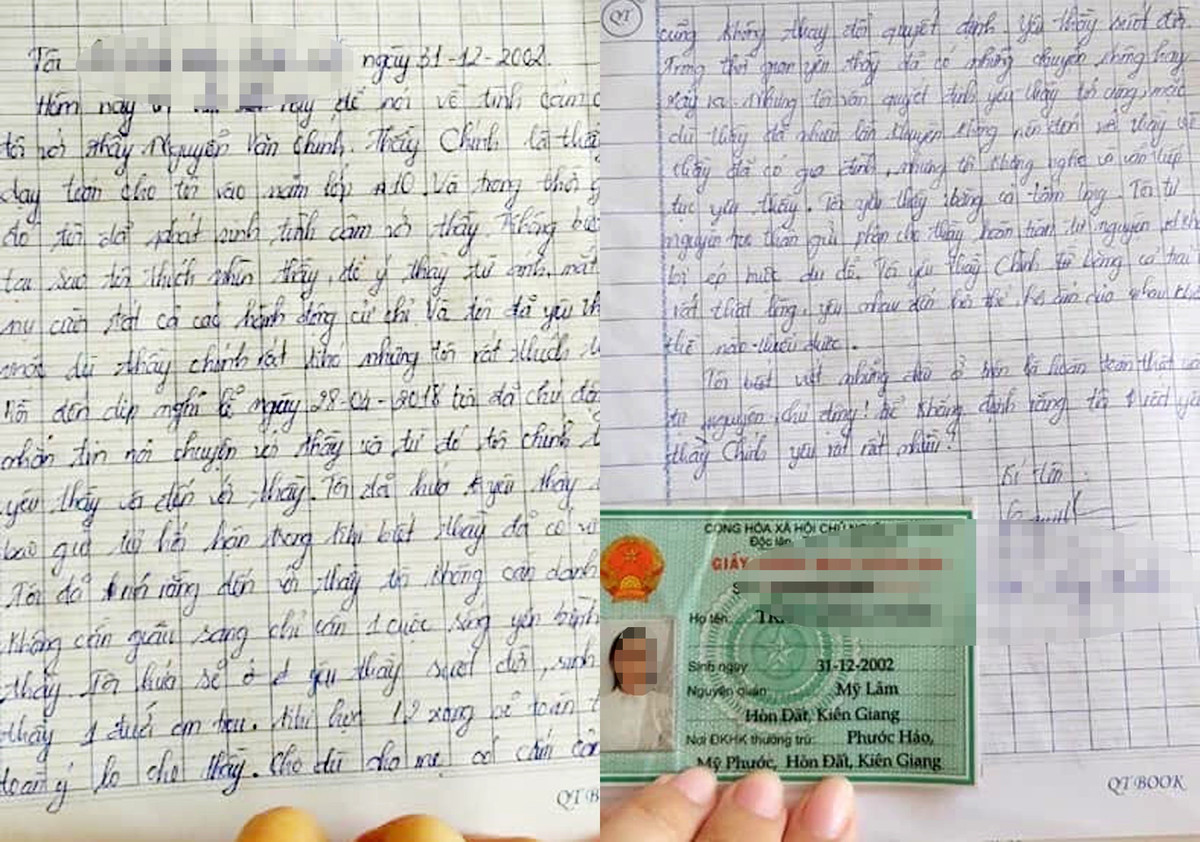 Tôi ngày 31-12-2002.
Hôm nay này để nói về tình cảm c
tôi với thầy Nguyễn Văn Chinh. Thầy Chinh là thầ
dạy toán cho tôi vào năm lớp A10. Và trong thời g
đó tôi đã phát sinh tình cảm với thầy. Không biế
tại sao tôi thích nhìn thầy, để ý thầy từ ánh mắt
nụ cười tất cả các hành động cử chỉ. Và tôi đã yêu th
mặc dù thầy chính rất khó nhưng tôi rất thích
đến dịp nghỉ lễ ngày 28-04-2018 tôi đã chủ độ
nhắn tin nói chuyện với thầy và từ đó tôi chính t
yêu thầy và đến với thầy. Tôi đã hứa yêu thầy
bao giờ hối hận trong khi biết thầy đã có vợ
Tôi đã rằng đến với thầy tôi không cần danh
không cần giàu sang chỉ cần 1 cuộc sống yên bình
thầy. Tôi hứa sẽ ở yêu thầy suốt đời, sinh
thầy 1 đứa em trai. Khi học 12 xong sẽ toàn t
toàn ý lo cho thầy. Cho dù cha mẹ có cấm cản
QT B
QT
cũng không thay đổi quyết định yêu thầy suốt đời.
Trong thời gian yêu thầy đã có những chuyện không hay
xảy ra. Nhưng tôi vẫn quyết định yêu thầy tới cùng, mặc
dù thầy đã nhiều lần khuyên không nên đến với thầy vì
thầy đã có gia đình, nhưng tôi không nghe và vẫn tiếp
tục yêu thầy. Tôi yêu thầy bằng cả tấm lòng. Tôi tự
nguyện trao thân gửi phận cho thầy hoàn toàn tự nguyện
bị ép buộc dụ dỗ. Tôi yêu thầy Chinh bằng cả trai
rất thật lòng, yêu nhau đến
thể nào thiếu được.
Tôi viết những điều ở trên là hoàn toàn thật và
tự nguyện, chủ động! Để khẳng định rằng tôi yêu
thầy Chinh yêu rất rất nhiều!
Kí tên
CỘNG HÒA XÃ HỘI CHỦ
Độc lập
GIẤY
Họ tên:
Sinh ngày 31-12-2002
Nguyên quán Mỹ Lâm
Hòn Đất, Kiên Giang
Nơi ĐKHK thường trú: Phước Hảo,
Mỹ Phước, Hòn Đất, Kiên Giang
QT BOOK